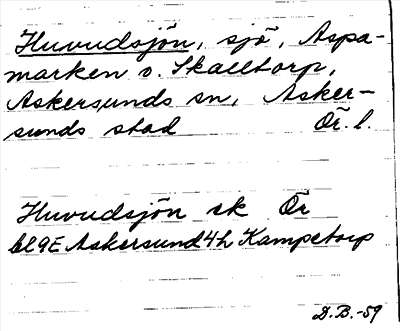 Huvudsjön, sjö, Aspa-
marken o. Skalltorp,
Askersunds sn, Asker-
sunds stad Ör. l.
Huvudsjön sk Ör
bl 9E Askersund 4h Kampetorp
D.B.-59